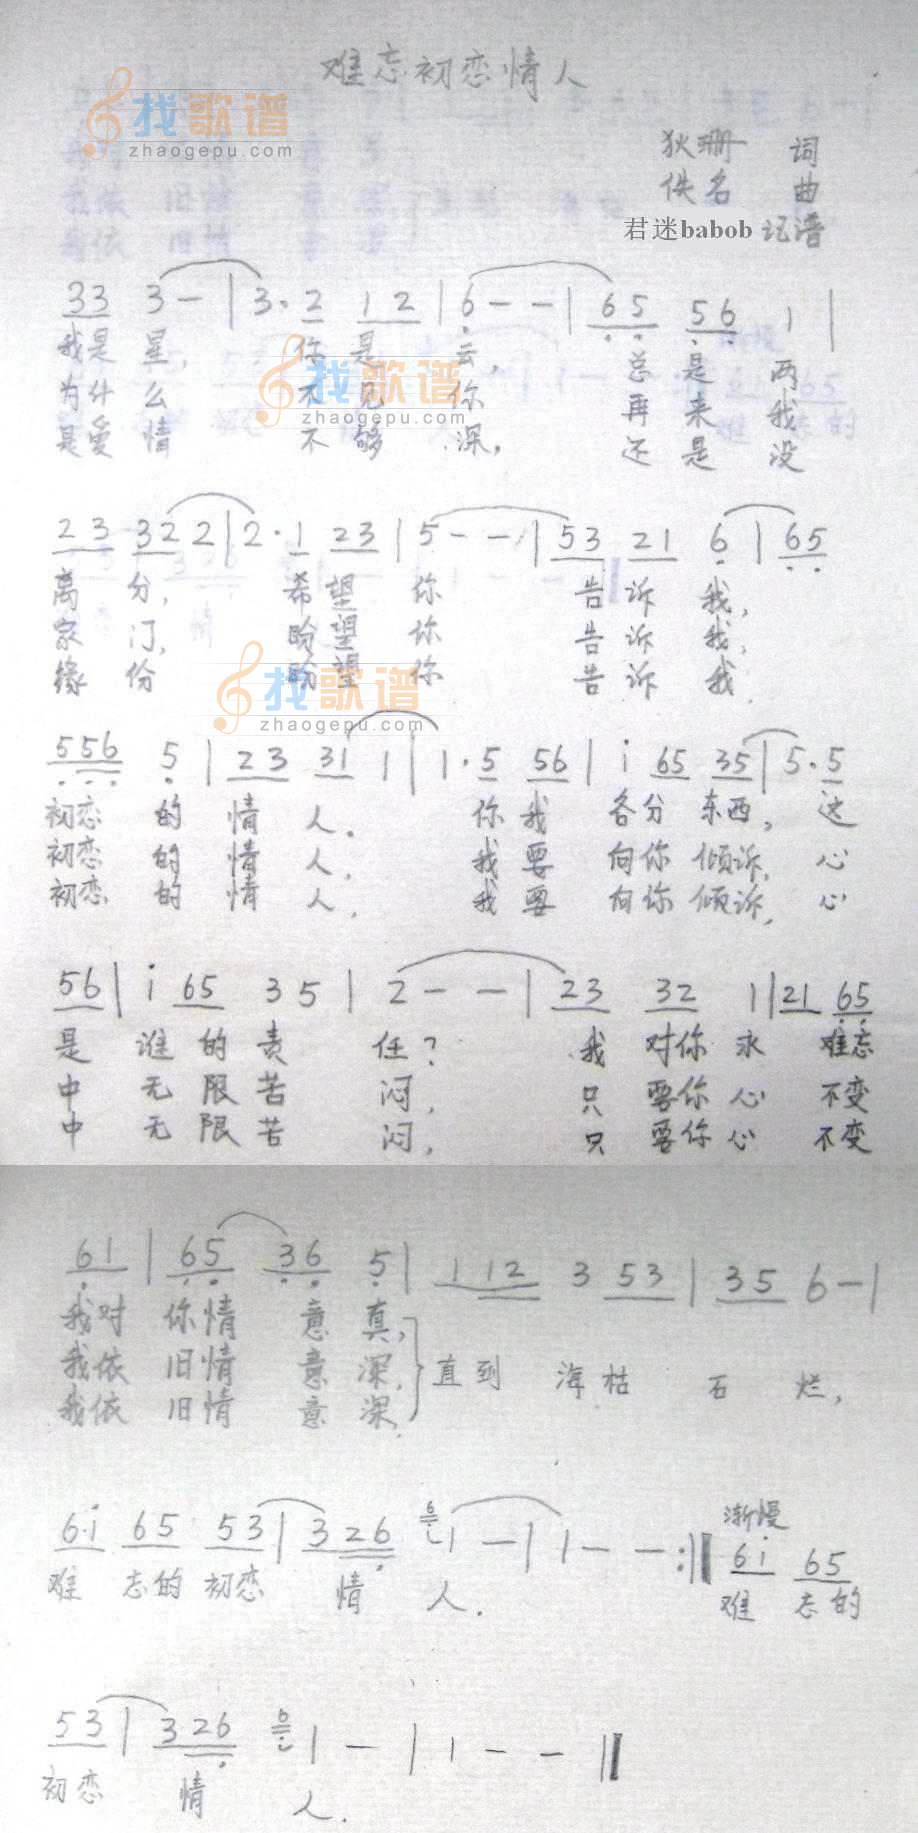 难忘初恋情人
找歌谱
zhaogepu.com
狄珊 词
佚名 曲
君迷babob 记谱
33 3 - | 3· 2 12 | 6 - - | 65 56 1 |
我是 星, 你 是 云, 总 是 两
为什 么 不 见 你 再 来 我
是爱 情 不 够 深, 还 是 没
找歌谱
zhaogepu.com
23 322 | 2· 1 23 | 5 - - | 53 21 6 | 65
离 分, 希 望 你 告 诉 我,
家 门, 盼 望 你 告 诉 我,
缘 份 盼 望 你 告 诉 我
找歌谱
zhaogepu.com
556 5 | 23 31 1 | 1· 5 56 | i 65 35 | 5· 5
初恋 的 情 人. 你 我 各分 东西, 这
初恋 的 情 人, 我 要 向你 倾诉, 心
初恋 的 情 人, 我 要 向你 倾诉, 心
56 | i 65 3 5 | 2 - - | 23 32 1 || 21 65
是 谁 的 责 任? 我 对你 永 难忘
中 无 限 苦 闷, 只 要你 心 不变
中 无 限 苦 闷, 只 要你 心 不变
61 | 65 36 5 | 1 12 3 53 | 35 6 - |
我对 你情 意 真,
我依 旧情 意 深, 直到 海枯 石 烂,
我依 旧情 意 深,
渐慢
6·i 65 53 | 326 6 1 - | 1 - - - :|| 6i 65
难 忘的 初恋 情 人. 难 忘的
53 | 326 6 1 - | 1 - - ||
初恋 情 人.